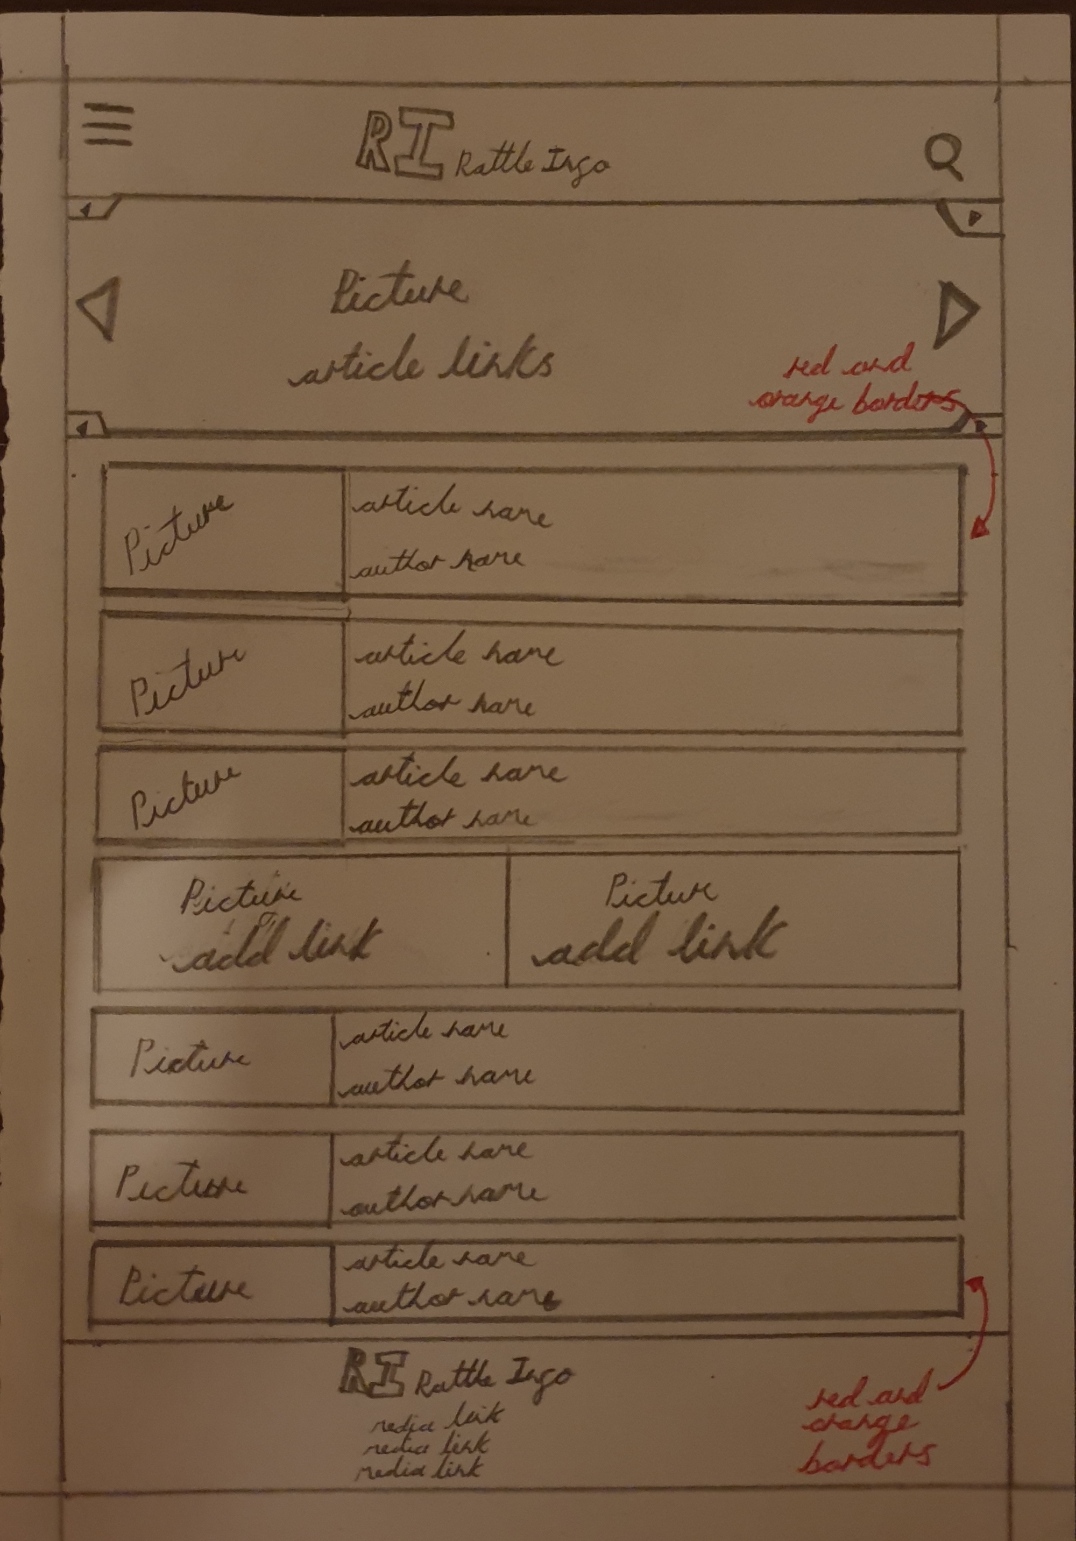 RI Rattle Ingo
Picture
article links
red and
orange borders
Picture
article name
author name
Picture
article name
author name
Picture
article name
author name
Picture
add link
Picture
add link
Picture
article name
author name
Picture
article name
author name
Picture
article name
author name
RI Rattle Ingo
media link
media link
media link
red and
orange
borders